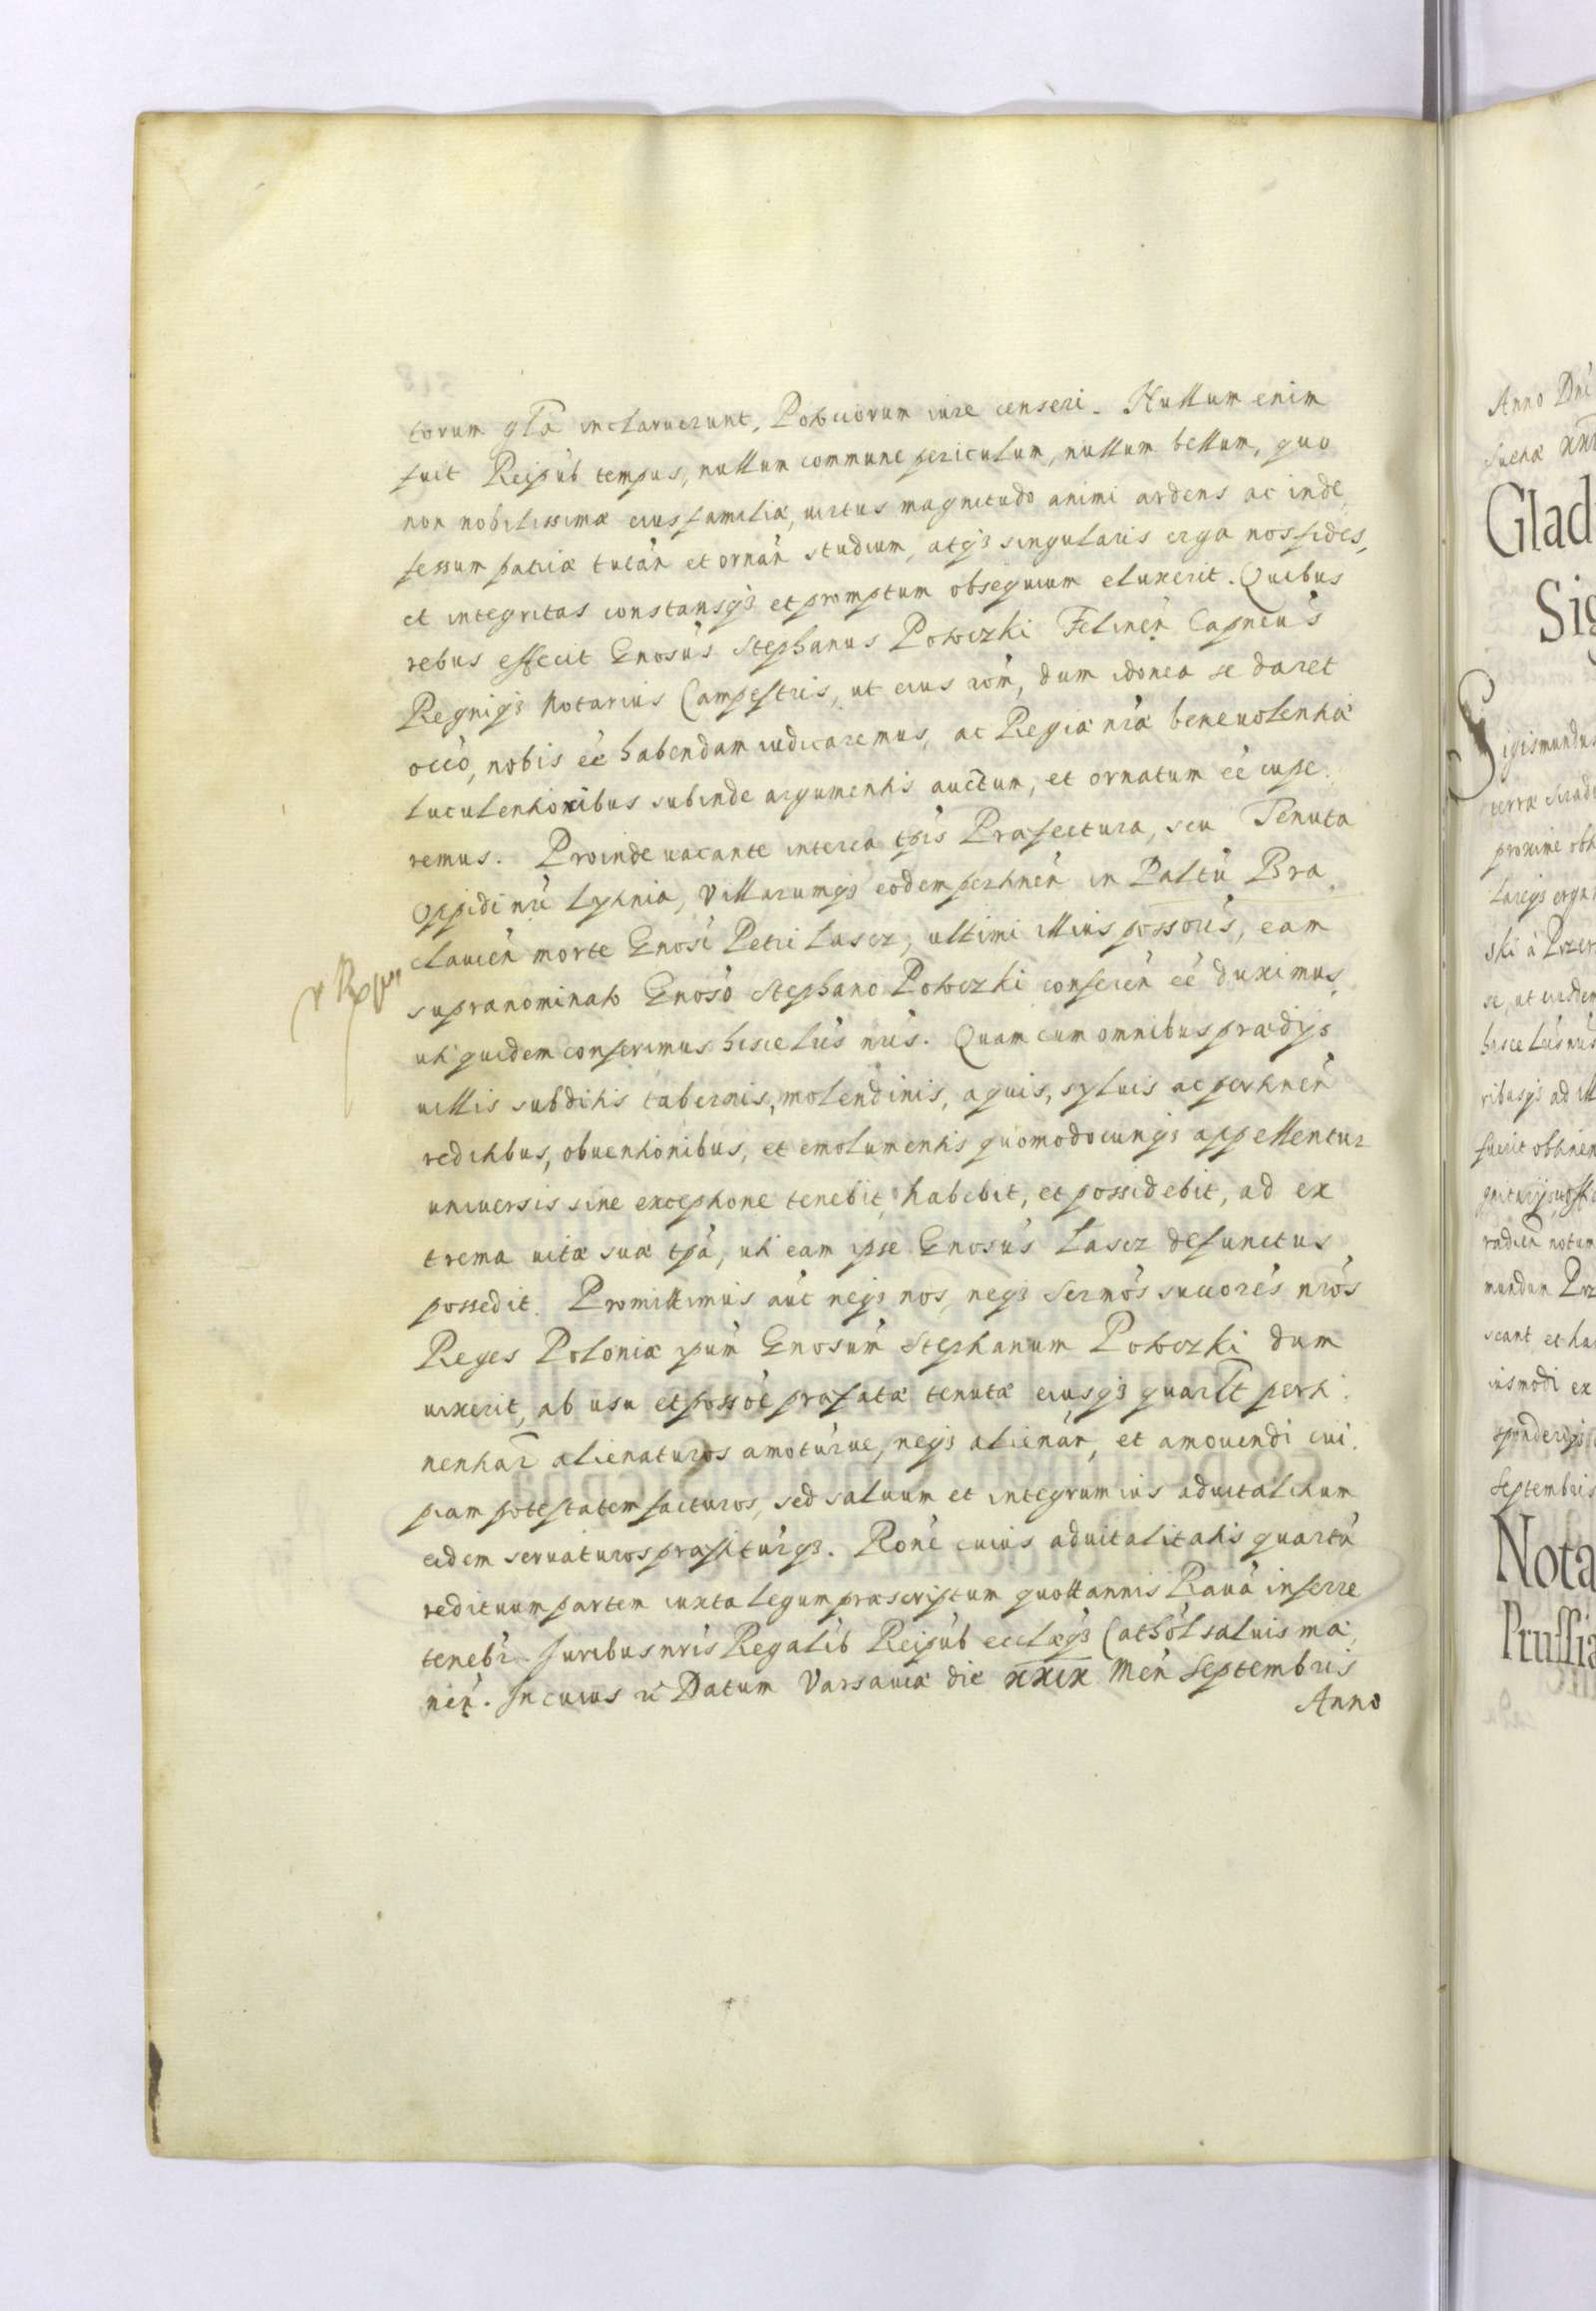 torum gła inclaruerunt, Potociorum iure censeri. Nullum enim
fuit Reipúb tempus, nullum commune periculum, nullum bellum, quo
non nobilissimæ eius familiæ, uirtus magnitudo animi ardens ac inde
fessum patriæ tutań et ornań studium, atq3 singularis erga nos fides,
et integritas constansq3 et promptum obsequium eluxerit. Quibus
rebus effecit Gnosús Stephanus Potoczki Felineń Capneús
Regniq3 Notarius Campestris, ut eius rom̃, dum idonea se daret
occó, nobis eé habendam iudicaremus, ac Regia nra beneuolentia
luculentioribus subinde argumentis auctum, et ornatum eé cupe
remus. Proinde uacante interea tpis Præfectura, seu Tenuta
Oppidi nri Lythnia, Villarumq3 eodem pertineń in Paltu Bra
clauień morte Gnosi Petri Lascz, ultimi illius possoris, eam
supranominato Gnosó Stephano Potoczki conferéń eé duximus,
uti quidem conferimus hisce lris nris. Quam cum omnibus prædijs
uillis subditis tabernis, molendinis, aquis, syluis ac pertineń
reditibus, obuentionibus, et emolumentis quomodocunq3 appellentur
uniuersis sine exceptione tenebit, habebit, et possidebit, ad ex
trema uitæ suæ tpa, uti eam ipse Gnosús Lascz defunctus
possedit. Promittimús aút neq3 nos, neq3 Sermós succorés nros
Reges Poloniæ ipum Gnosum Stephanum Potoczki dum
uixerit, ab usu et possoé præfatæ tenutæ eiusq3 quarlt perti
nentiar alienaturos amoturue, neq3 alienań, et amouendi cui
piam potestatem facturos, sed saluum et integrum ius aduitalitium
eidem seruaturos præstiturq3. Roné cuius aduitalitatis quartú
redituum partem iuxta legum præscriptum quottannis Rauá inferre
tenebr. Juribus nris Regalib Reipúb ecclæq3 Cathol saluis ma
neń. In cuius ri Datum Varsauiæ die xxix Meń Septembris
Anno
Anno Dni
Glad
Sig
Sigismundus
proxime obt
Septembris
Nota
Prussia